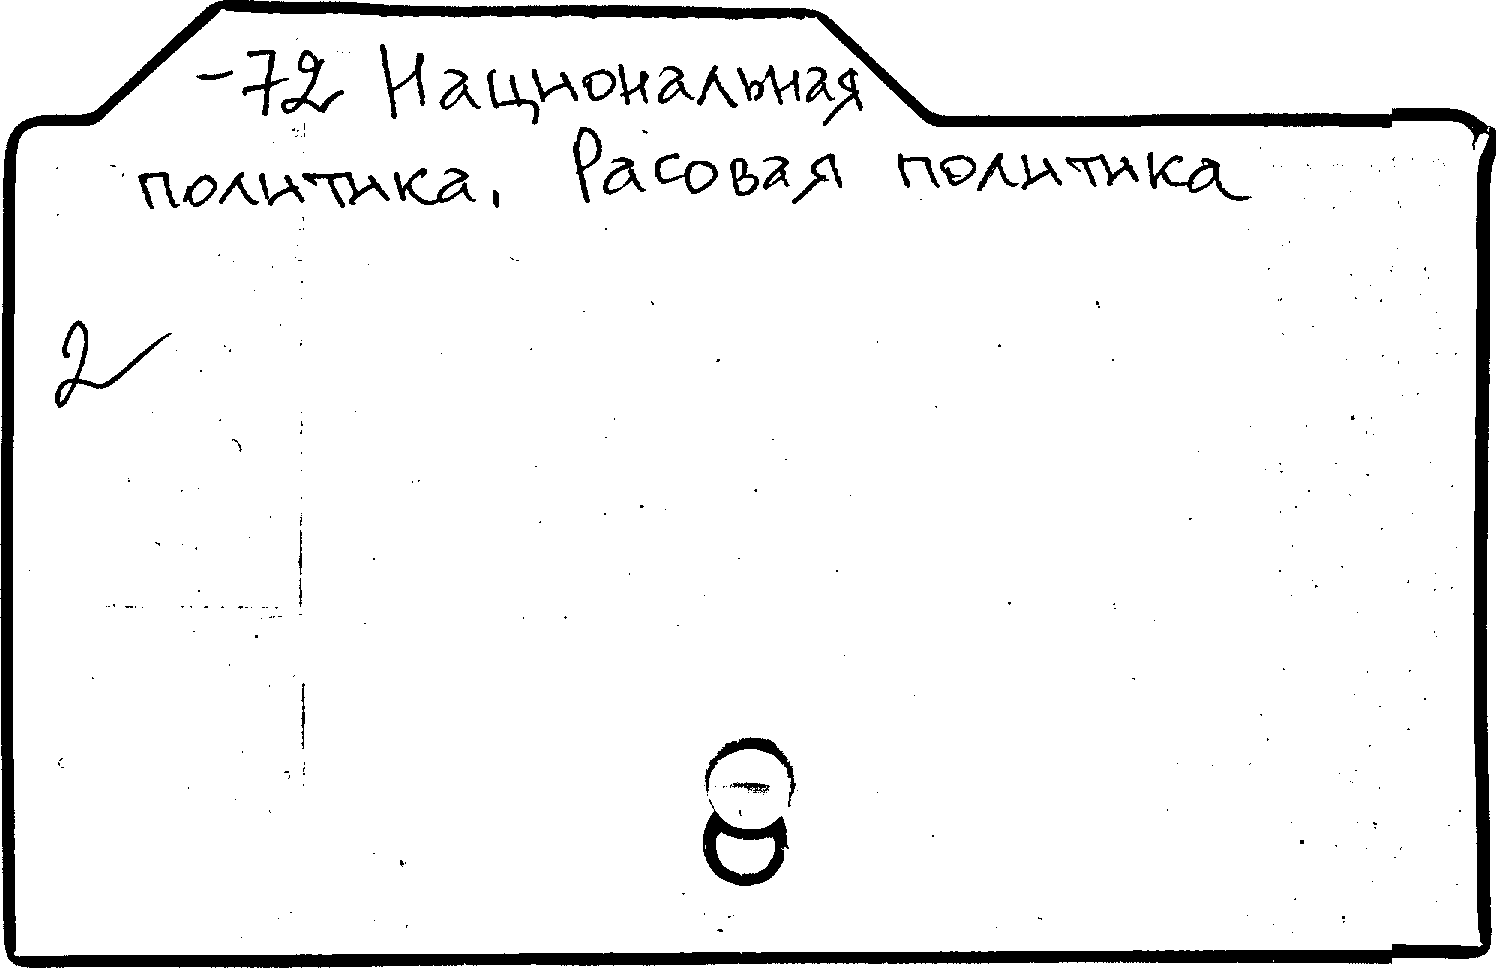 -72 Национальная
политика. Расовая политика
2